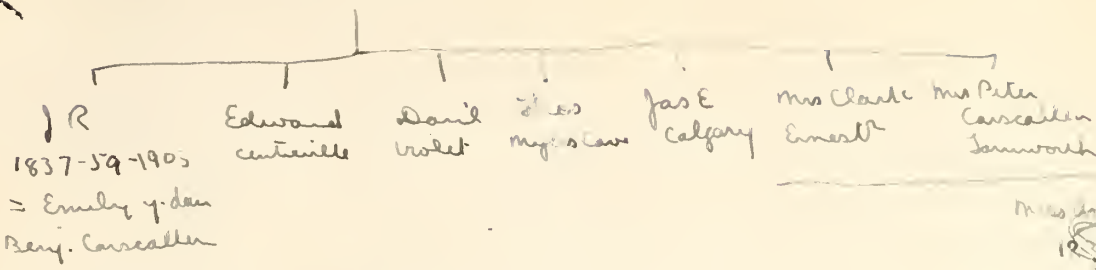 J R
1837-59-1905
= Emily y. dau
Benj. Carscallen
Edward
Centreville
David
Violet
Myles Cave
Jas E
Calgary
Mrs Clark
Ernest
Mrs Peter
Carscallen
Tamworth
Miss